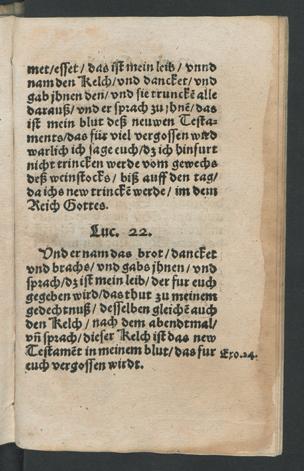 met/esset/das ist mein leib/vnnd
nam den Kelch/vnd dancket/vnd
gab jhnen den/vnd sie trunckẽ alle
darauß/vnd er sprach zu jhnẽ/das
ist mein blut deß neuwen Testa-
ments/das für viel vergossen wird
warlich ich sage euch/dz ich hinfurt
nicht trincken werde vom gewechs
deß weinstocks/biß auff den tag/
da ichs new trincke werde/im dem
Reich Gottes.
Luc. 22.
Vnd er nam das brot/dancket
vnd brachs/vnd gabs jhnen/vnd
sprach/dz ist mein leib/der fur euch
gegeben wird/das thut zu meinem
gedechtnuß/desselben gleichẽ auch
den Kelch/nach dem abendtmal/
vñ sprach/dieser Kelch ist das new
Testamẽt in meinem blut/das fur
Exo.24.
euch vergossen wirdt.